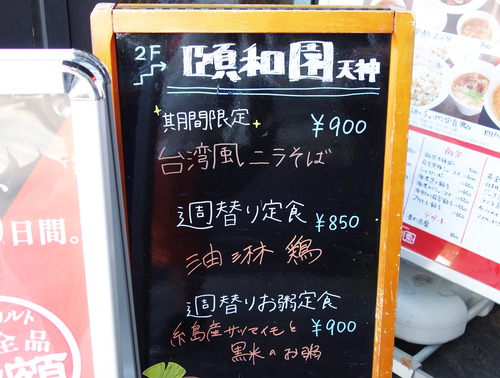 2F
頤和園 天神
期間限定
¥900
台湾風ニラそば
週替り定食 ¥850
油淋鶏
週替りお粥定食
糸島産サツマイモと
黒米のお粥
¥900
日間。
全品
額